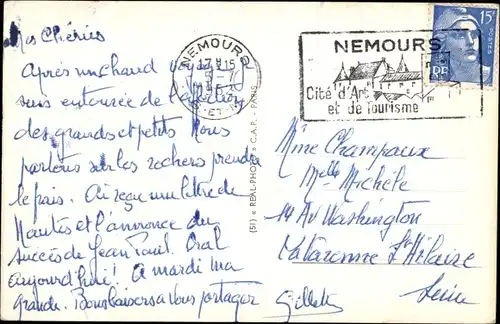 Mes Chéries
Après un chaud voyage je
suis entourée de l'affection
des grands et petits Nous
partons sur les rochers prendre
le frais. Ai reçu une lettre de
Nantes et l'annonce du
succès de Jean Paul. Oral
aujourd'hui! A mardi ma
grande. Bons baisers a vous partager
Gillette
NEMOURS
17 H 15
5-7
NEMOURS
Cité d'Art
et de Tourisme
15F
RF
(51) « REAL-PHOTO » C.A.P. - PARIS
Mme Champaux
Melle Michèle
14 Av Washington
La Varenne St Hilaire
Seine